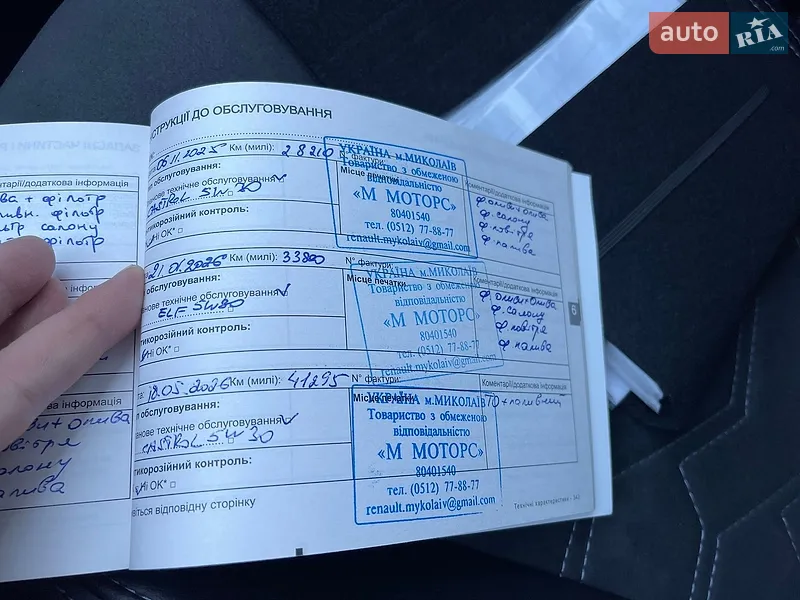 auto RIA.com
тарії/додаткова інформація
фільтр
фільтр
салону
фільтр
СТРУКЦІЇ ДО ОБСЛУГОВУВАННЯ
06.11.2025 Км (милі): 28210 N° фактури:
п обслуговування:
нове технічне обслуговування V
CASTROL 5W30
тикорозійний контроль:
Ні ОК* □
Місце печатки
УКРАЇНА м.МИКОЛАЇВ
Товариство з обмеженою
відповідальністю
«М МОТОРС»
80401540
тел. (0512) 77-88-77
renault.mykolaiv@gmail.com
Коментарі/додаткова інформація
ф. олив+олива
ф. салону
ф. повітря
ф. палива
21.01.2026 Км (милі): 33800 N° фактури:
обслуговування:
нове технічне обслуговування V
ELF 5W30
тикорозійний контроль:
Ні ОК* □
Місце печатки
УКРАЇНА м.МИКОЛАЇВ
Товариство з обмеженою
відповідальністю
«М МОТОРС»
80401540
тел. (0512) 77-88-77
renault.mykolaiv@gmail.com
Коментарі/додаткова інформація
ф. олив+олива
ф. салону
ф. повітря
ф. палива
6
12.05.2026 Км (милі): 41295 N° фактури:
п обслуговування:
нове технічне обслуговування V
CASTROL 5W30
тикорозійний контроль:
Ні ОК* □
Місце печатки
УКРАЇНА м.МИКОЛАЇВ
Товариство з обмеженою
відповідальністю
«М МОТОРС»
80401540
тел. (0512) 77-88-77
renault.mykolaiv@gmail.com
Коментарі/додаткова інформація
ТО + паливний
іться відповідну сторінку
Технічні характеристики - 341